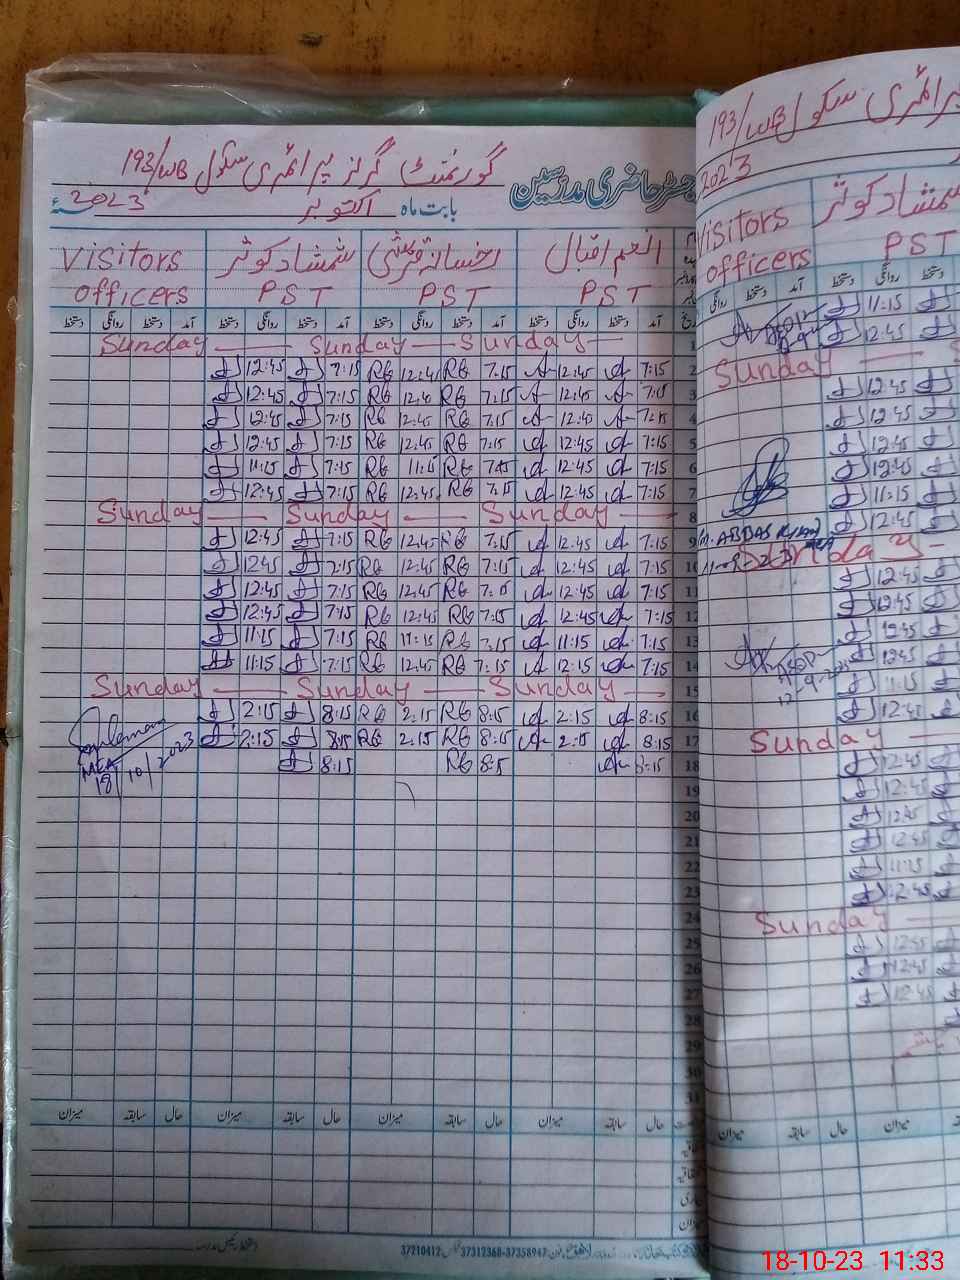 گورنمنٹ گرلز پرائمری سکول 193/WB
رجسٹر حاضری مدرسین
بابت ماہ اکتوبر 2023
انعم اقبال رخسانہ قریشی شمشاد کوثر Visitors
PST PST PST officers
آمد دستخط روانگی دستخط آمد دستخط روانگی دستخط آمد دستخط روانگی دستخط آمد دستخط روانگی دستخط
1 Sunday Sunday Sunday
2 7:15 12:45 7:15 RG 12:45 RG 7:15 12:45
3 7:15 12:45 7:15 RG 12:45 RG 7:15 12:45
4 7:15 12:45 7:15 RG 12:45 RG 7:15 12:45
5 7:15 12:45 7:15 RG 12:45 RG 7:15 12:45
6 7:15 12:45 7:15 RG 11:15 RG 7:15 11:15
7 7:15 12:45 7:15 RG 12:45 RG 7:15 12:45
8 Sunday Sunday Sunday
9 7:15 12:45 7:15 RG 12:45 RG 7:15 12:45
10 7:15 12:45 7:15 RG 12:45 RG 7:15 12:45
11 7:15 12:45 7:15 RG 12:45 RG 7:15 12:45
12 7:15 12:45 7:15 RG 12:45 RG 7:15 12:45
13 7:15 11:15 7:15 RG 11:15 RG 7:15 11:15
14 7:15 12:15 7:15 RG 12:45 RG 7:15 11:15
15 Sunday Sunday Sunday
16 8:15 2:15 8:15 RG 2:15 RG 8:15 2:15
17 8:15 2:15 8:15 RG 2:15 RG 8:15 2:15
18 8:15 8:15 RG 8:15
MEA
18/10/2023
19
20
21
22
23
24
25
26
27
28
29
30
31
حال سابقہ میزان حال سابقہ میزان حال سابقہ میزان حال سابقہ میزان
37210412 37312368-37358947
پرائمری سکول 193/WB
2023
شمشاد کوثر Visitors
PST officers
آمد دستخط روانگی
11:15
12:45
Sunday
12:45
12:45
12:45
12:45
11:15
12:45
Sunday
12:45
12:45
12:45
12:45
11:15
12:45
Sunday
12:45
12:45
12:45
12:45
11:15
12:45
Sunday
12:45
12:45
12:45
میزان حال سابقہ میزان
18-10-23 11:33